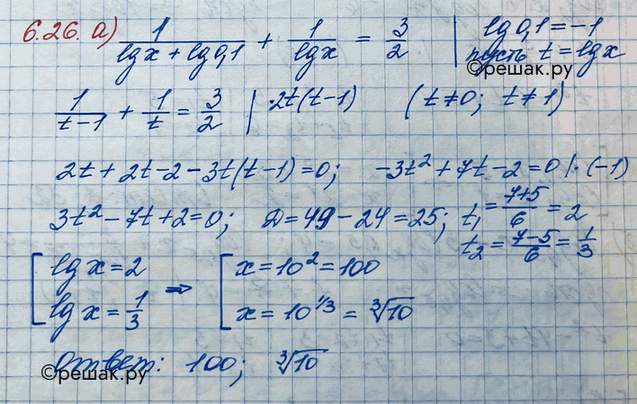 6.26. а) 1/(lg x + lg 0,1) + 1/lg x = 3/2 | lg 0,1 = -1
пусть t = lg x
©решак.ру
1/(t-1) + 1/t = 3/2 | ·2t(t-1) (t≠0; t≠1)
2t + 2t - 2 - 3t(t-1) = 0; -3t² + 7t - 2 = 0 | ·(-1)
3t² - 7t + 2 = 0; Д = 49 - 24 = 25; t₁ = (7+5)/6 = 2
t₂ = (7-5)/6 = 1/3
[ lg x = 2 ⇒ [ x = 10² = 100
[ lg x = 1/3 [ x = 10^(1/3) = ∛10
Ответ: 100; ∛10
©решак.ру